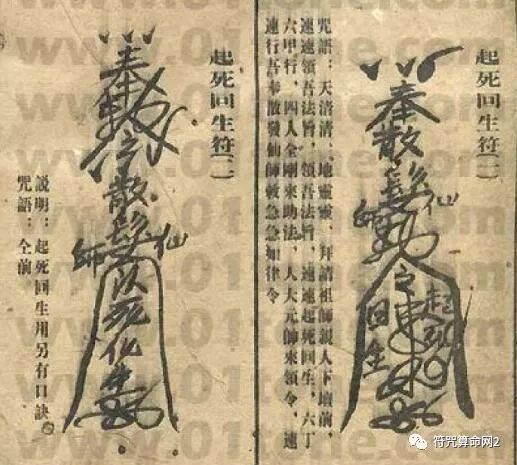 起死回生符(一)
奉散髮仙師
起死
回生
咒語：天清清、地靈靈、拜請祖師親人下壇前，
速速領吾法旨，領吾法旨，速速起死回生，六丁
六甲行，四人金剛來助法，人大元帥來領令，速
速行吾奉散髮仙師敕急急如律令
起死回生符(二)
奉
散髮仙師
以死化生
說明：起死回生用另有口訣。
咒語：仝前
www.01tone.com
符咒算命网2